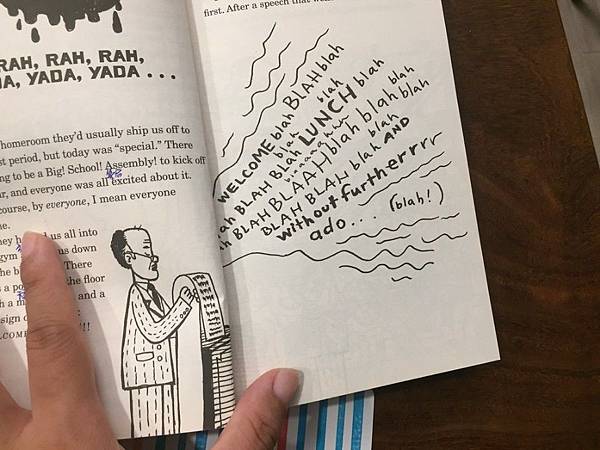 RAH, RAH, RAH,
YADA, YADA . . .
homeroom they'd usually ship us off to
period, but today was “special.” There
to be a Big! School! Assembly! to kick off
and everyone was all excited about it.
course, by everyone, I mean everyone
us all into
gym us down
There
the floor
and a
first. After a speech that
WELCOME blah BLAH blah
blah blah
BLAH BLah LUNCH blah blah
BLAH BLAAH blah blah blah
BLAH BLAH blah AND
without furtherrrr
ado... (blah!)